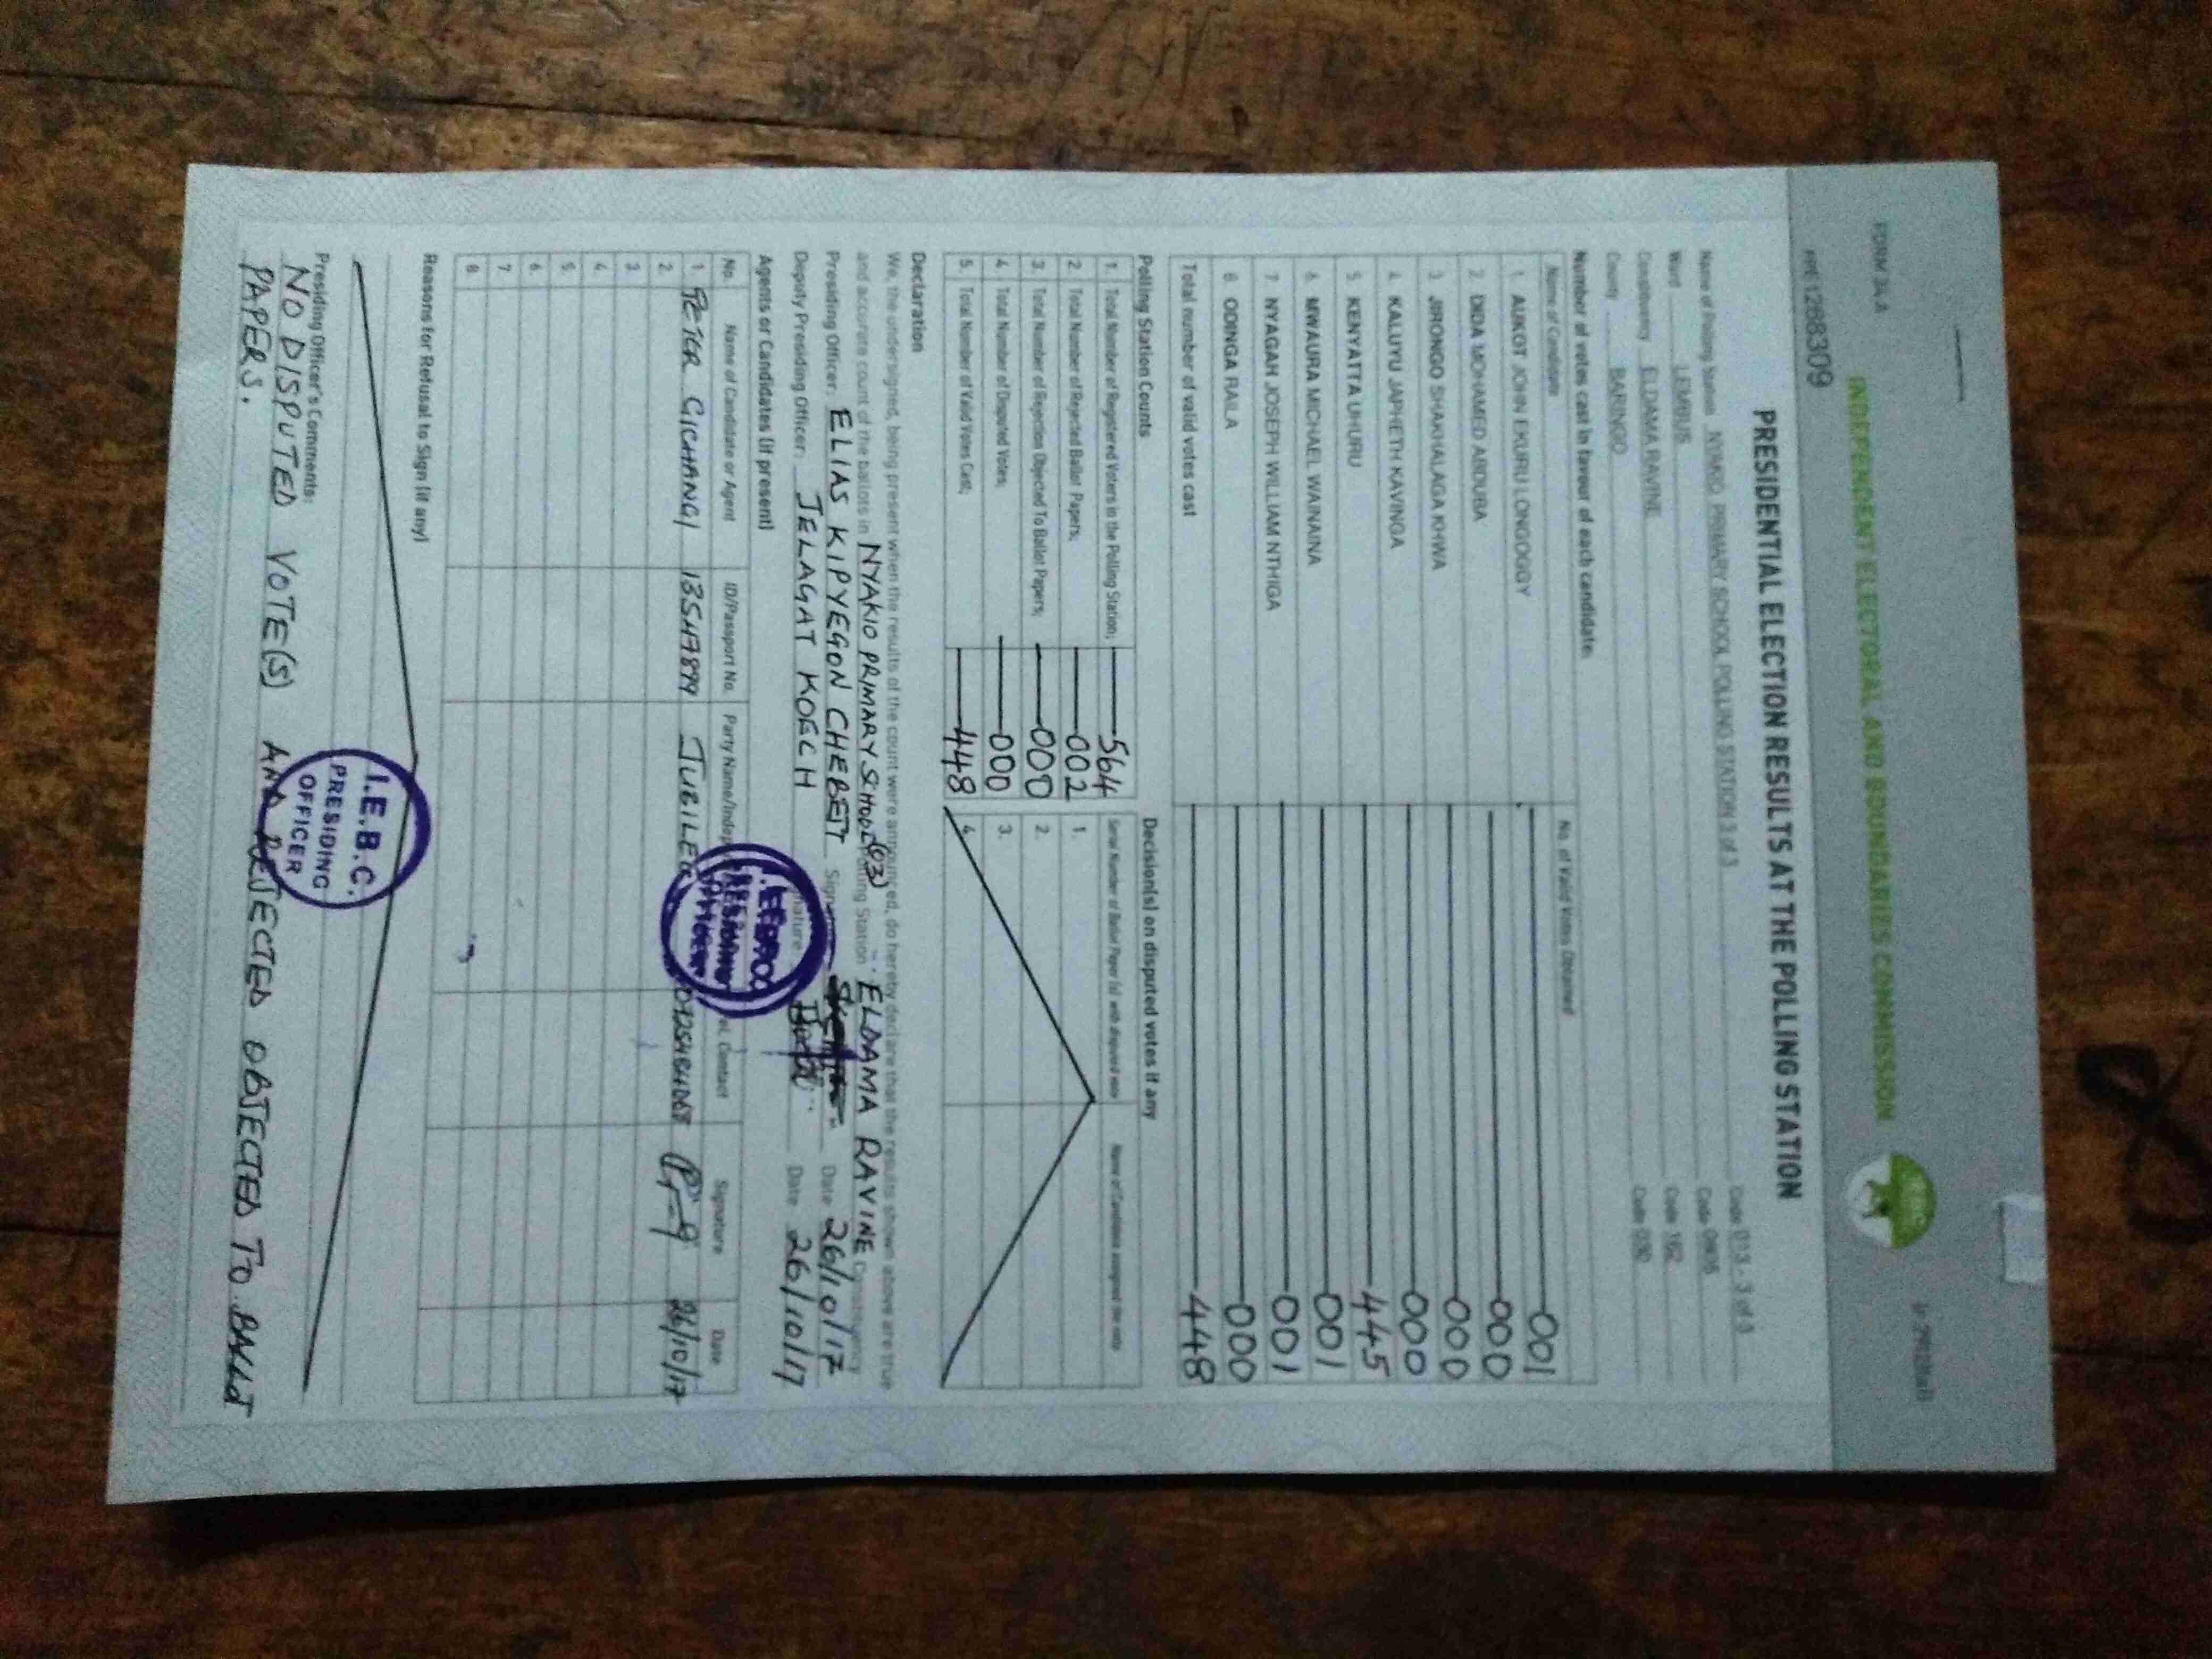 FORM 34 A
INDEPENDENT ELECTORAL AND BOUNDARIES COMMISSION
PRE1268309
PRESIDENTIAL ELECTION RESULTS AT THE POLLING STATION
Name of Polling Station PRIMARY SCHOOL POLLING STATION 3 of 3 Code 013 - 3 of 3
Ward LEMBUS Code
Constituency ELDAMA RAVINE Code 162
County BARINGO Code 030
Number of votes cast in favour of each candidate:
Name of Candidate No. of Valid Votes Obtained
1. AUKOT JOHN EKURU LONGOGGY 001
2. DIDA MOHAMED ABDUBA 000
3. JIRONGO SHAKHALAGA KHWA 000
4. KALUYU JAPHETH KAVINGA 000
5. KENYATTA UHURU 445
6. MWAURA MICHAEL WAINAINA 001
7. NYAGAH JOSEPH WILLIAM NTHIGA 001
8. ODINGA RAILA 000
Total number of valid votes cast 448
Polling Station Counts Decision(s) on disputed votes if any
Serial Number of Ballot Paper (s) with disputed vote
1. Total Number of Registered Voters in the Polling Station; 564 1.
2. Total Number of Rejected Ballot Papers; 002 2.
3. Total Number of Rejection Objected To Ballot Papers; 000 3.
4. Total Number of Disputed Votes; 000 4.
5. Total Number of Valid Votes Cast; 448
Declaration
We, the undersigned, being present when the results of the count were announced, do hereby declare that the results shown above are true
and accurate count of the ballots in NYAKIO PRIMARY SCHOOL (03) Polling Station ELDAMA RAVINE Constituency
Presiding Officer: ELIAS KIPYEGON CHEBETT Date 26/10/17
Deputy Presiding Officer: JELAGAT KOECH Signature Date 26/10/17
Agents or Candidates (if present)
No. Name of Candidate or Agent ID/Passport No. Tel. Contact Signature Date
1 PETER GICHANGI 13547899 JUBILEE 26/10/17
2
3
4
5
6
7
8
Reasons for Refusal to Sign (if any)
I.E.B.C.
PRESIDING
OFFICER
Presiding Officer's Comments:
NO DISPUTED VOTE(S) AND REJECTED OBJECTED TO BALLOT
PAPERS.